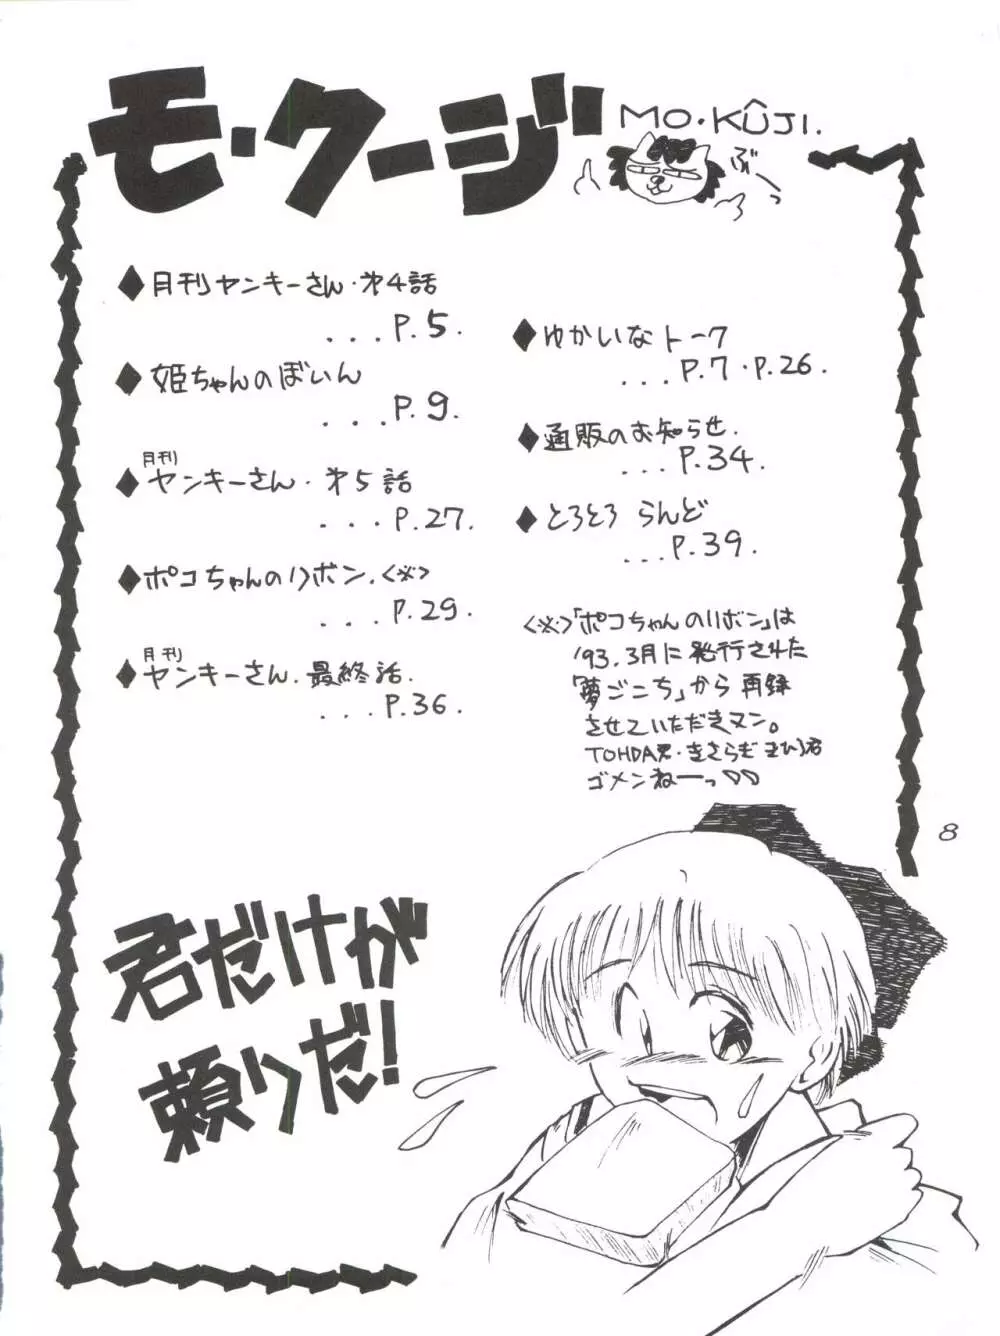 モ・クージ
MO・KÛJI.
ぶーっ
◆月刊ヤンキーさん・才4話
...P.5.
◆姫ちゃんのぼいん
...P.9.
月刊
◆ヤンキーさん・才5話
...P.27.
◆ポコちゃんのリボン.<※>
...P.29.
月刊
◆ヤンキーさん.最終話.
...P.36.
◆ゆかいなトーク
...P.7・P.26.
◆通販のお知らせ.
...P.34.
◆とろとろ らんど
...P.39.
<※>「ポコちゃんのリボン」は
'93.3月に発行された
「夢ごこち」から再録
させていただきマン。
TOHDA君・きさらぎまひる君
ゴメンねーっ♡♡
8
君だけが
頼りだ!